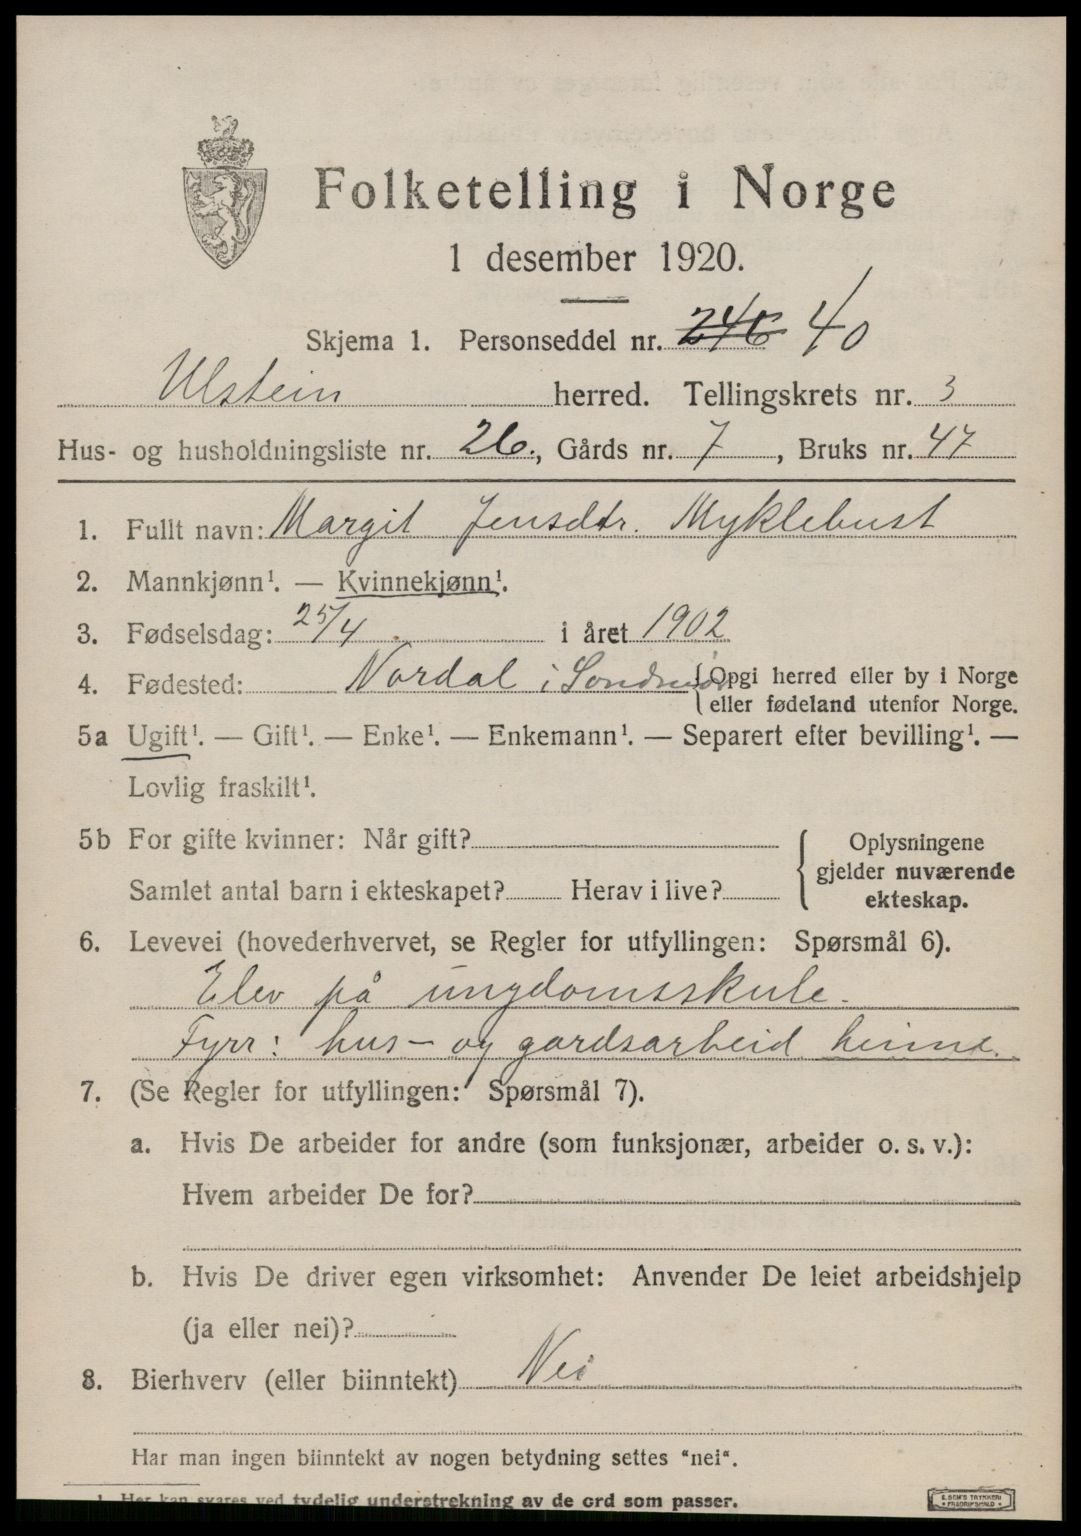 Folketelling i Norge
1 desember 1920.
Skjema 1. Personseddel nr. 246 40
Ulstein herred. Tellingskrets nr. 3
Hus- og husholdningsliste nr. 26., Gårds nr. 7, Bruks nr. 47
1. Fullt navn: Margit Jensdtr. Myklebust
2. Mannkjønn¹. — Kvinnekjønn¹.
3. Fødselsdag: 25/4 i året 1902
4. Fødested: Nordal i Søndmør {Opgi herred eller by i Norge
eller fødeland utenfor Norge.
5a Ugift¹. — Gift¹. — Enke¹. — Enkemann¹. — Separert efter bevilling¹. —
Lovlig fraskilt¹.
5b For gifte kvinner: Når gift?
Samlet antal barn i ekteskapet? Herav i live?
Oplysningene
gjelder nuværende
ekteskap.
6. Levevei (hovederhvervet, se Regler for utfyllingen: Spørsmål 6).
Elev på ungdomsskule.
Fyrr: hus- og gardsarbeid heime.
7. (Se Regler for utfyllingen: Spørsmål 7).
a. Hvis De arbeider for andre (som funksjonær, arbeider o. s. v.):
Hvem arbeider De for?
b. Hvis De driver egen virksomhet: Anvender De leiet arbeidshjelp
(ja eller nei)?
8. Bierhverv (eller biinntekt) Nei
Har man ingen biinntekt av nogen betydning settes "nei".
1 Her kan svares ved tydelig understrekning av de ord som passer.